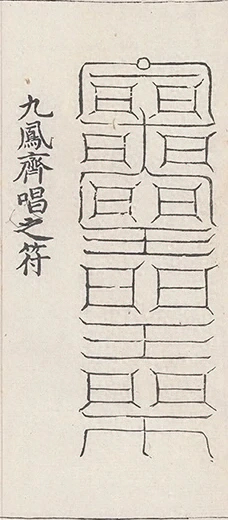 九鳳齊唱之符